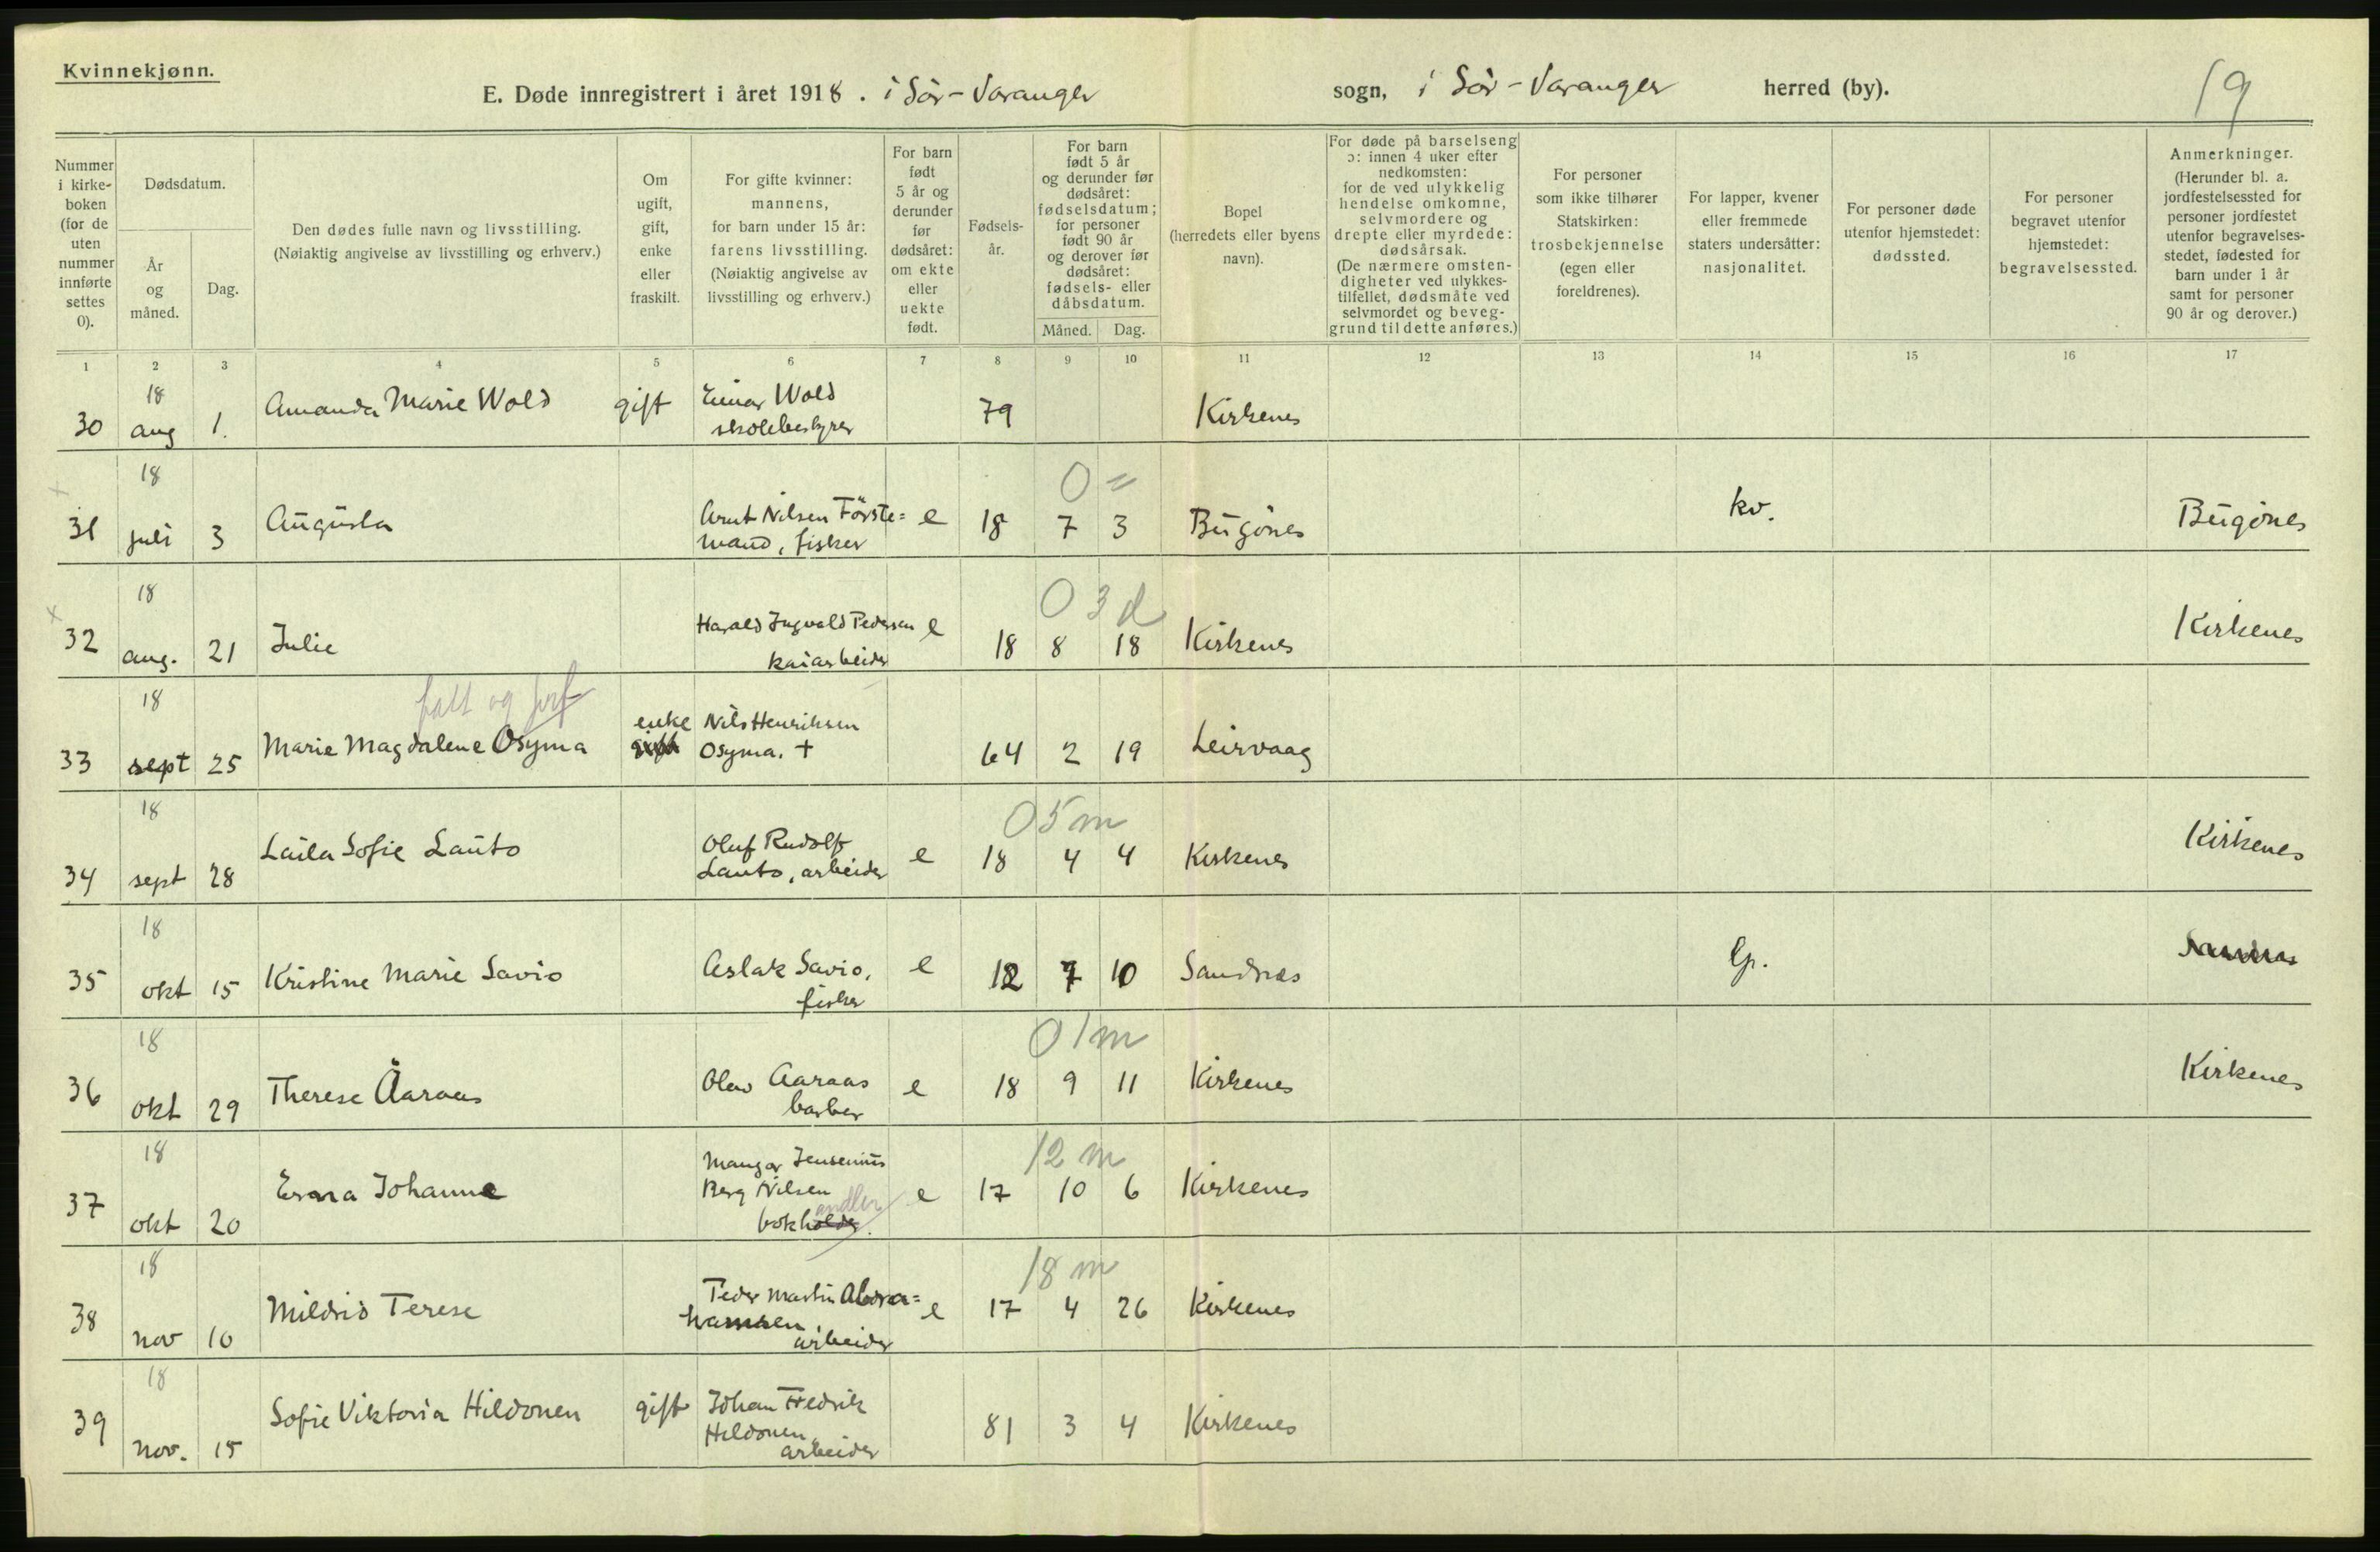 Kvinnekjønn.
E. Døde innregistrert i året 1918. i Sör-Varanger sogn, i Sör-Varanger herred (by).
19
Nummer i kirke-boken (for de uten nummer innførte settes 0).
Dødsdatum.
År og måned.
Dag.
Den dødes fulle navn og livsstilling.
(Nøiaktig angivelse av livsstilling og erhverv.)
Om ugift, gift, enke eller fraskilt.
For gifte kvinner: mannens, for barn under 15 år: farens livsstilling. (Nøiaktig angivelse av livsstilling og erhverv.)
For barn født 5 år og derunder før dødsåret: om ekte eller uekte født.
Fødsels-år.
For barn født 5 år og derunder før dødsåret: fødselsdatum; for personer født 90 år og derover før dødsåret: fødsels- eller dåbsdatum.
Måned. Dag.
Bopel (herredets eller byens navn).
For døde på barselseng ɔ: innen 4 uker efter nedkomsten: for de ved ulykkelig hendelse omkomne, selvmordere og drepte eller myrdede: dødsårsak. (De nærmere omsten-digheter ved ulykkes-tilfellet, dødsmåte ved selvmordet og beveg-grund til dette anføres.)
For personer som ikke tilhører Statskirken: trosbekjennelse (egen eller foreldrenes).
For lapper, kvener eller fremmede staters undersåtter: nasjonalitet.
For personer døde utenfor hjemstedet: dødssted.
For personer begravet utenfor hjemstedet: begravelsessted.
Anmerkninger. (Herunder bl. a. jordfestelsessted for personer jordfestet utenfor begravelses-stedet, fødested for barn under 1 år samt for personer 90 år og derover.)
1 2 3 4 5 6 7 8 9 10 11 12 13 14 15 16 17
18
30 aug 1. Amanda Marie Wold gift Einar Wold skolebestyrer 79 Kirkenes
18 0 =
31 juli 3 Augusta Arnt Nilsen Förste=mand, fisker e 18 7 3 Bugönes kv. Bugönes
18 0 3 d
32 aug. 21 Julie Harald Ingvald Pedersen kaiarbeider e 18 8 18 Kirkenes Kirkenes
18 fatt og forf
33 sept 25 Marie Magdalene Osyma enke gift Nils Henriksen Osyma. + 64 2 19 Leirvaag
18 0 5 m
34 sept 28 Laila Sofie Lauto Oluf Rudolf Lauto, arbeider e 18 4 4 Kirkenes Kirkenes
18
35 okt 15 Kristine Marie Savio Aslak Savio, fisker e 12 7 10 Sandnes lp.
18 0 1 m
36 okt 29 Therese Aaraas Olav Aaraas barber e 18 9 11 Kirkenes Kirkenes
18 12 m
37 okt 20 Erna Johanne Mangor Jensenius Berg Nilsen bokholder. andler e 17 10 6 Kirkenes
18 18 m
38 nov 10 Mildrid Terese Peder Martin Abra=hamsen, arbeider e 17 4 26 Kirkenes
18
39 nov. 15 Sofie Viktoria Hildonen gift Johan Fredrik Hildonen, arbeider 81 3 4 Kirkenes